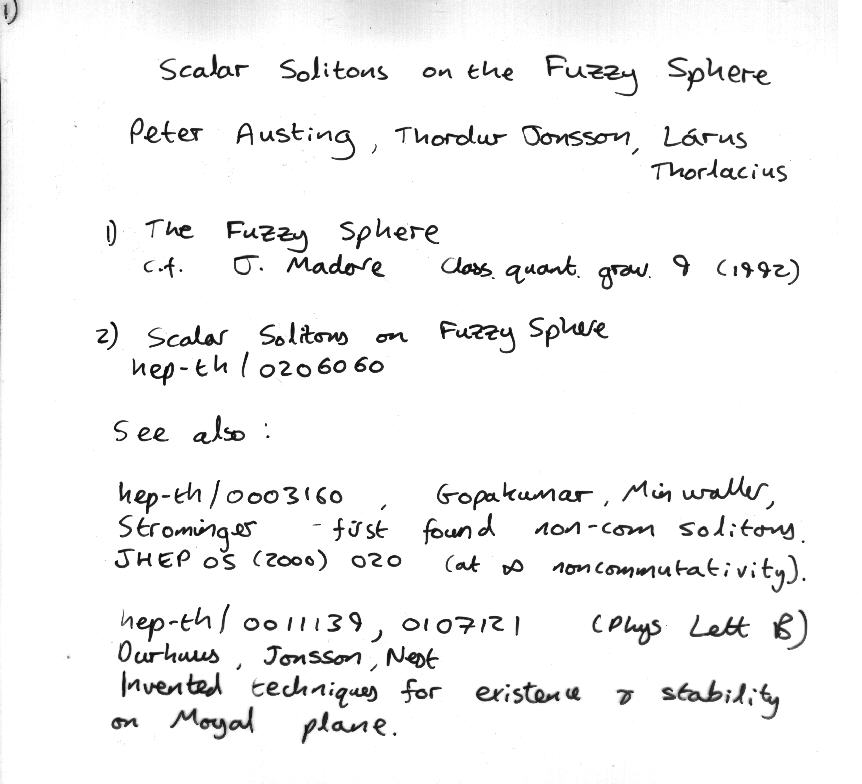 1)
Scalar Solitons on the Fuzzy Sphere
Peter Austing, Thordur Jonsson, Lárus
Thorlacius
1) The Fuzzy Sphere
c.f. J. Madore Class. quant. grav. 9 (1992)
2) Scalar Solitons on Fuzzy Sphere
hep-th/0206060
See also :
hep-th/0003160, Gopakumar, Minwaller,
Strominger - first found non-com solitons.
JHEP 05 (2000) 020 (at ∞ noncommutativity).
hep-th/0011139, 0107121 (Phys Lett B)
Durhuus, Jonsson, Nest
Invented techniques for existence & stability
on Moyal plane.